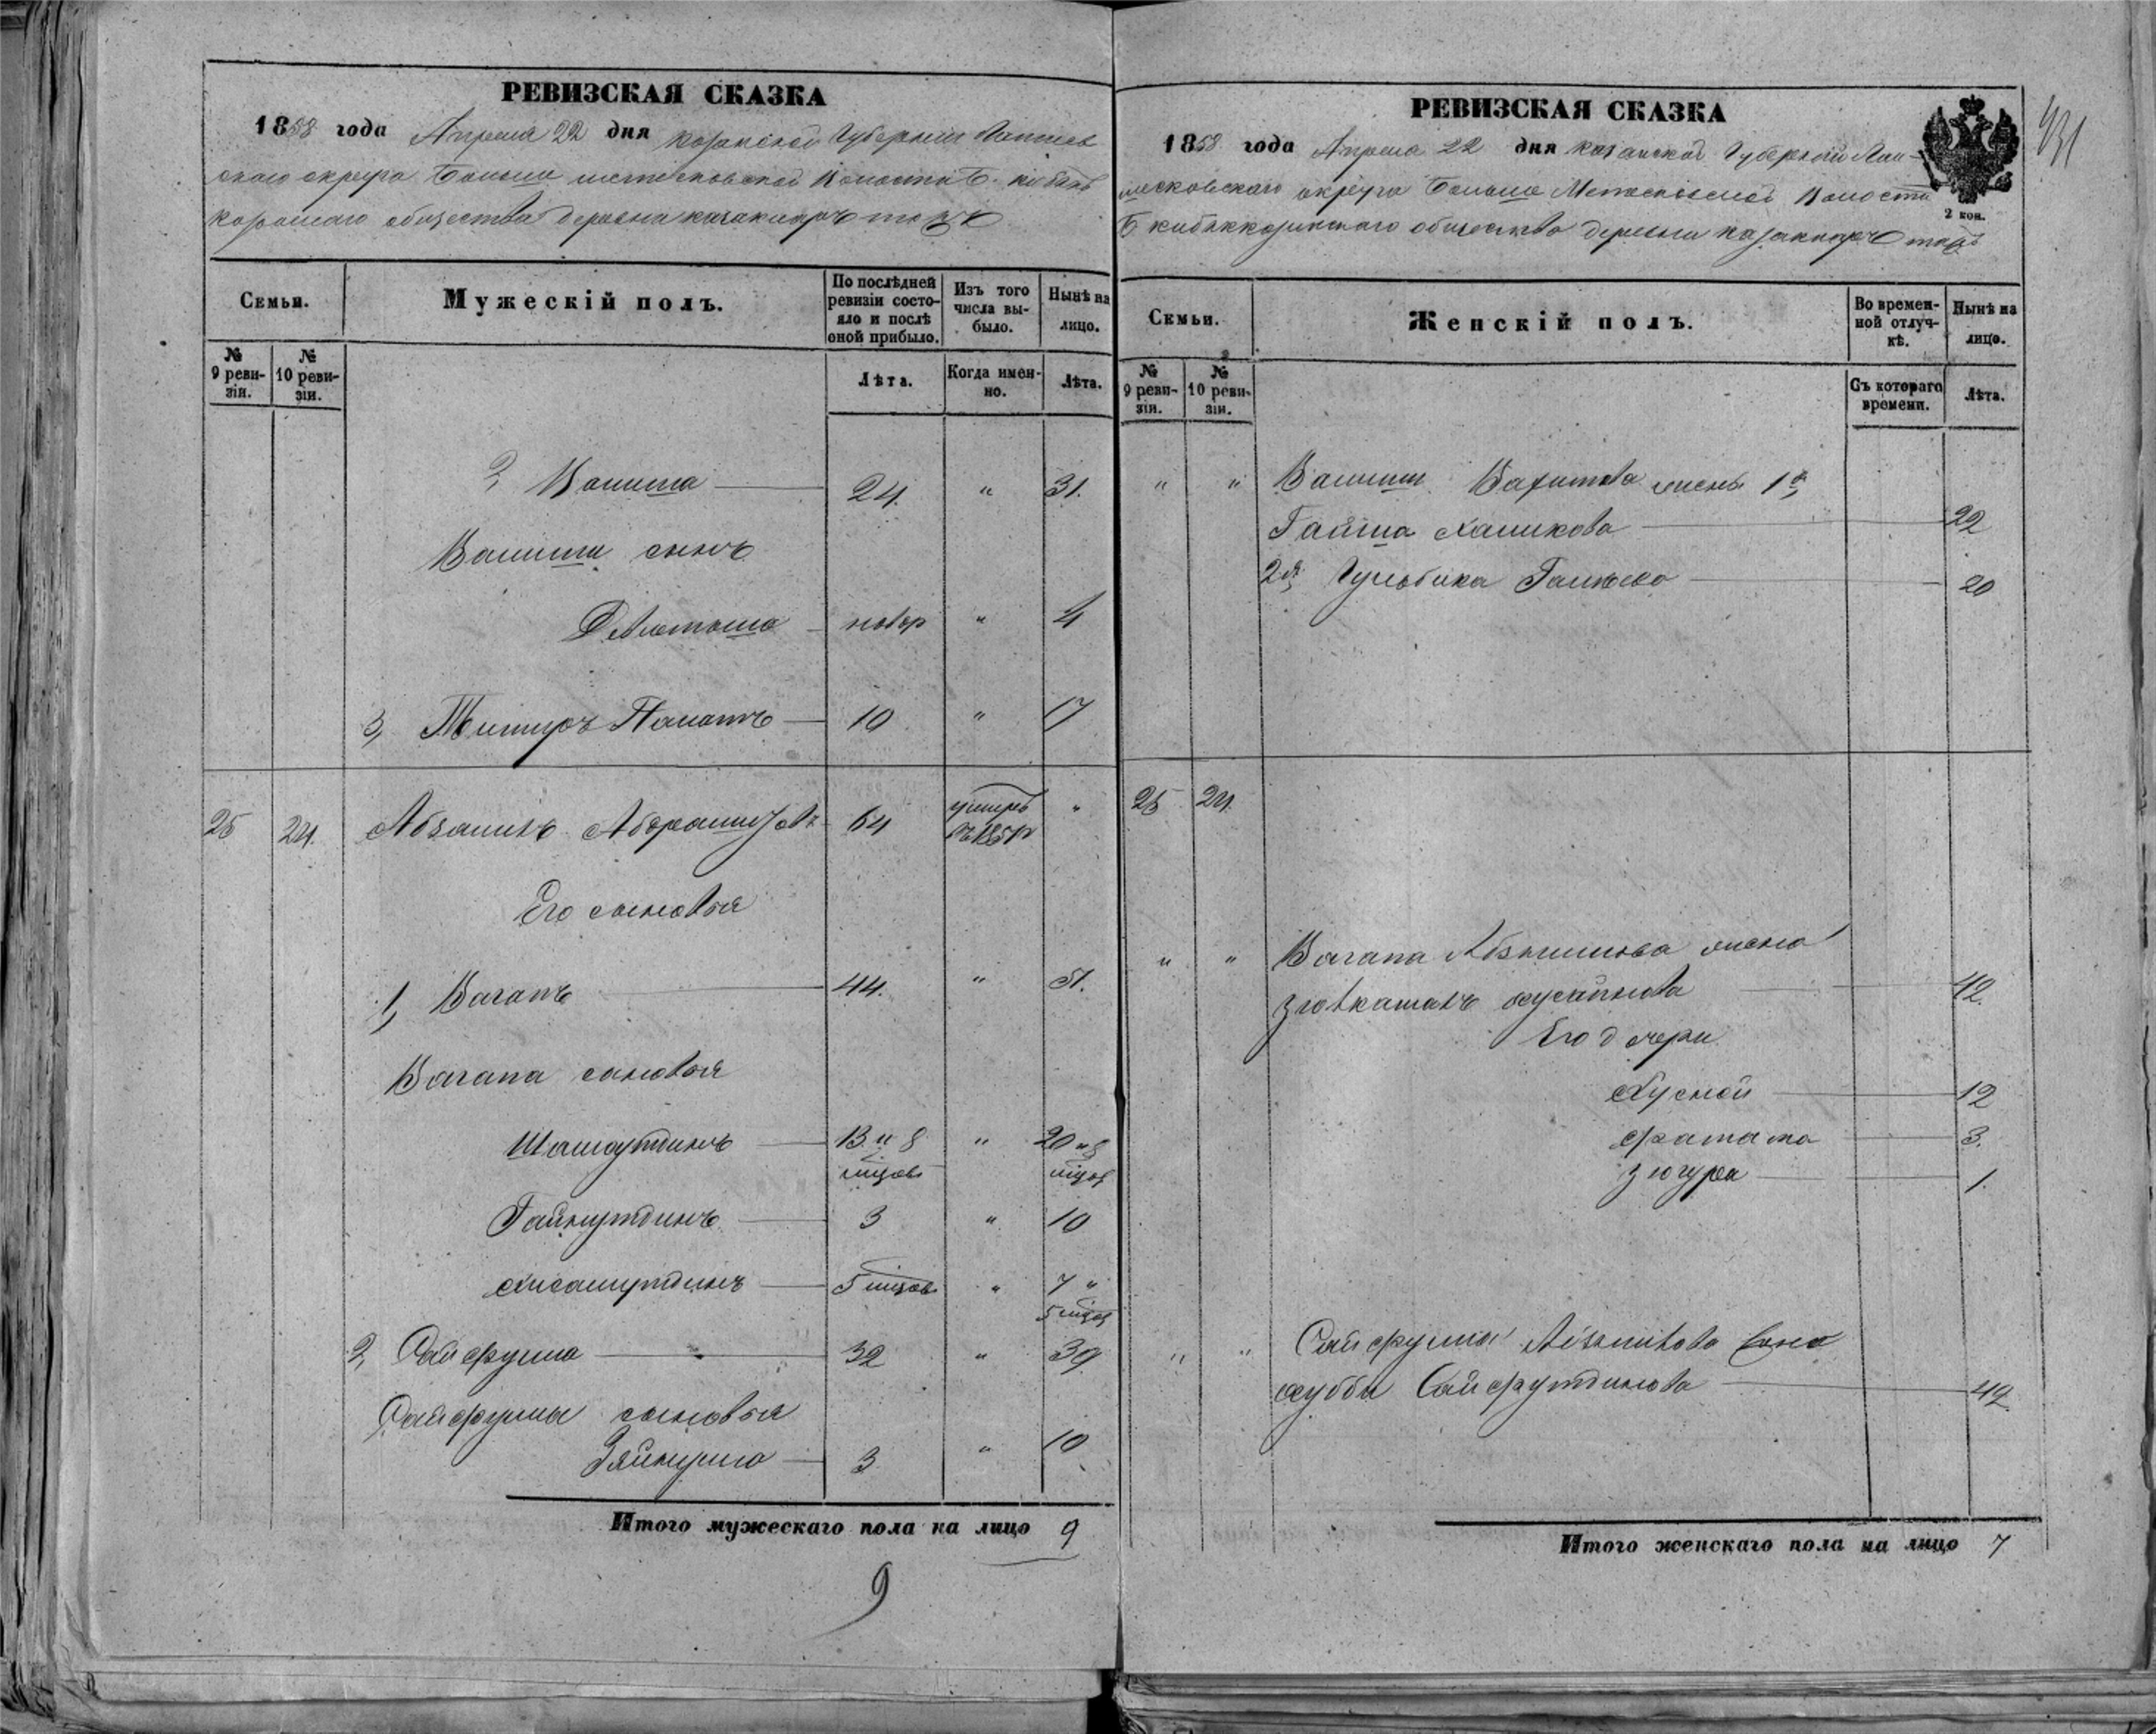 РЕВИЗСКАЯ СКАЗКА
1858 года Апреля 22 дня Казанской Губернии Лаишев
скаго округа Больше метесковской Волости Б. кибяк
козинскаго общества деревни казаклар Отаръ
Семьи.
Мужескій полъ.
По послѣдней ревизіи состояло и послѣ оной прибыло.
Изъ того числа выбыло.
Нынѣ на лицо.
№ 9 ревизіи.
№ 10 ревизіи.
Лѣта.
Когда именно.
Лѣта.
2, Валиша 24 " 31.
Валиши сынъ
новор " 4
3, Тимиръ Палатъ 10 " 17
25 24. Абзалилъ 64 умеръ въ " 
Его сыновья
1, Вагапъ 44. " 51.
Вагапа сыновья
Шамсутдинъ 13 и 8 мцов " 20 и 8 мцов
Гайнутдинъ 3 " 10
Хисамутдинъ 5 мцов " 7 " 5 мцов
2, Сайфулла 32 " 39
Сайфуллы сыновья
Зяйнулла 3 " 10
Итого мужескаго пола на лицо 9
9
РЕВИЗСКАЯ СКАЗКА
431
1858 года Апреля 22 дня Казанской Губерніи Лаи-
шевскаго округа Больше Метесковской Волости
2 коп.
Б кибяккозинскаго общества деревни казаклар Отаръ
Семьи.
Женскій полъ.
Во временной отлучкѣ.
Нынѣ на лицо.
№ 9 ревизіи.
№ 10 ревизіи.
Съ котораго времени.
Лѣта.
" " Валиши Вахитова жены 1я
Гайша Халикова 22
2я Гульбика Галѣева 20
25 24.
" " Вагапа Абзалилова жена
42.
Его дочери
Хусной 12
Фатыма 3.
Зюгура 1.
" " Сайфуллы Абзалилова жена
Хубби Сайфутдинова 42
Итого женскаго пола на лицо 7